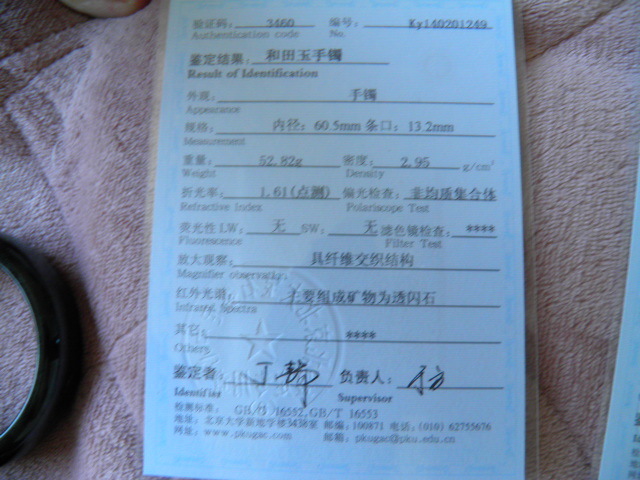 验证码: 3460 编号: Ky140201249
Authentication code No.
鉴定结果: 和田玉手镯
Result of Identification
外观: 手镯
Appearance
规格: 内径: 60.5mm 条口: 13.2mm
Measurement
重量: 52.82g 密度: 2.95 g/cm³
Weight Density
折光率: 1.61(点测) 偏光检查: 非均质集合体
Refractive Index Polariscope Test
荧光性 LW: 无 SW: 无 滤色镜检查: ****
Fluorescence Filter Test
放大观察: 具纤维交织结构
Magnifier observation
红外光谱: 主要组成矿物为透闪石
Infrared Spectra
其它: ****
Others
鉴定者: 丁 负责人:
Identifier Supervisor
检测标准: GB/T 16552,GB/T 16553
地址: 北京大学新地学楼3438室 邮编: 100871 电话: (010) 62755676
网址: www.pkugac.com 邮箱: pkugac@pku.edu.cn